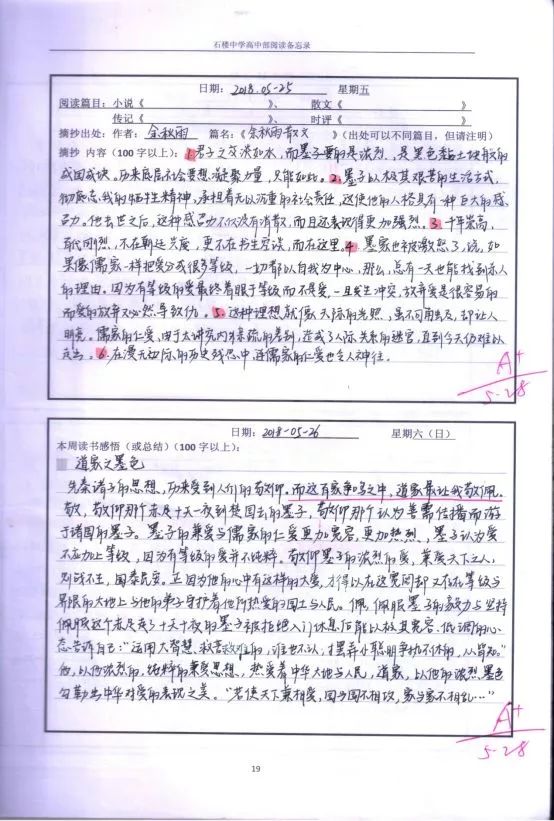 石楼中学高中部阅读备忘录
日期：2018.05-25 星期五
阅读篇目：小说《 》、 散文《 》
传记《 》、 时评《 》
摘抄出处：作者：余秋雨 篇名：《余秋雨散文 》（出处可以不同篇目，但请注明）
摘抄 内容（100字以上）：1.君子之交淡如水，而墨子要的是浓烈，是黑色黏土块般的
成团成块。历来底层社会要想凝聚力量，只能如此。2.墨子以极其艰苦的生活方式，
彻底忘我的牺牲精神，承担着无比沉重的社会责任，这使他的人格具有一种巨大的感
召力。他去世之后，这种感召力不仅没有消散，而且还表现得更加强烈。3.千年崇高，
百代刚烈，不在朝廷兴废，更不在书生空谈，而在这里。4.墨家也被激怒了，说，如
果像儒家一样把爱分成很多等级，一切都以自我为中心，那么，总有一天也能找到杀人
的理由。因为有等级的爱最终着眼于等级而不是爱，一旦发生冲突，放弃爱是很容易的
而爱的放弃又必然导致仇。5.这种理想就像天际的光照，虽不可触及，却让人
明亮。儒家的仁爱，由于太讲究内外亲疏的差别，造成了人际关系的迷宫，直到今天仍难以
走出。6.在漫无边际的历史残忍中，连儒家的仁爱也令人神往。
A+
5-28
日期：2018-05-26 星期六（日）
本周读书感悟（或总结）（100字以上）：
道家之墨色
先秦诸子的思想，历来受到人们的敬仰。而这百家争鸣之中，道家最让我敬佩。
敬，敬仰那个赤足十天一夜到楚国去的墨子，敬仰那个认为善需信播而游
于诸国的墨子。墨子的兼爱与儒家的仁爱更加宽容，更加热烈，墨子认为爱
不应加上等级，因为有等级的爱并不纯粹。敬仰墨子的浓烈的爱，兼爱天下之人，
则战不生，国泰民安。正因为他的心中有这样的大爱，才得以在这宽阔却又存在等级与
界限的大地上与他的弟子守护着他所热爱的国土与人民。佩，佩服墨子的毅力与坚持
佩服这个赤足走了十天十夜的墨子被拒绝入门休息后能以极其宽容、低调的心
态告诉自己：“运用大智慧，救苦救难的，谁也不认，摆弄小聪明争执不休的，人皆知。”
他，以他浓烈的，纯粹的兼爱思想，热爱着中华大地与人民，道家，以他的浓烈墨色
勾勒出中华对爱的表现之美。“若使天下兼相爱，国与国不相攻，家与家不相乱…”
A+
5-28
19